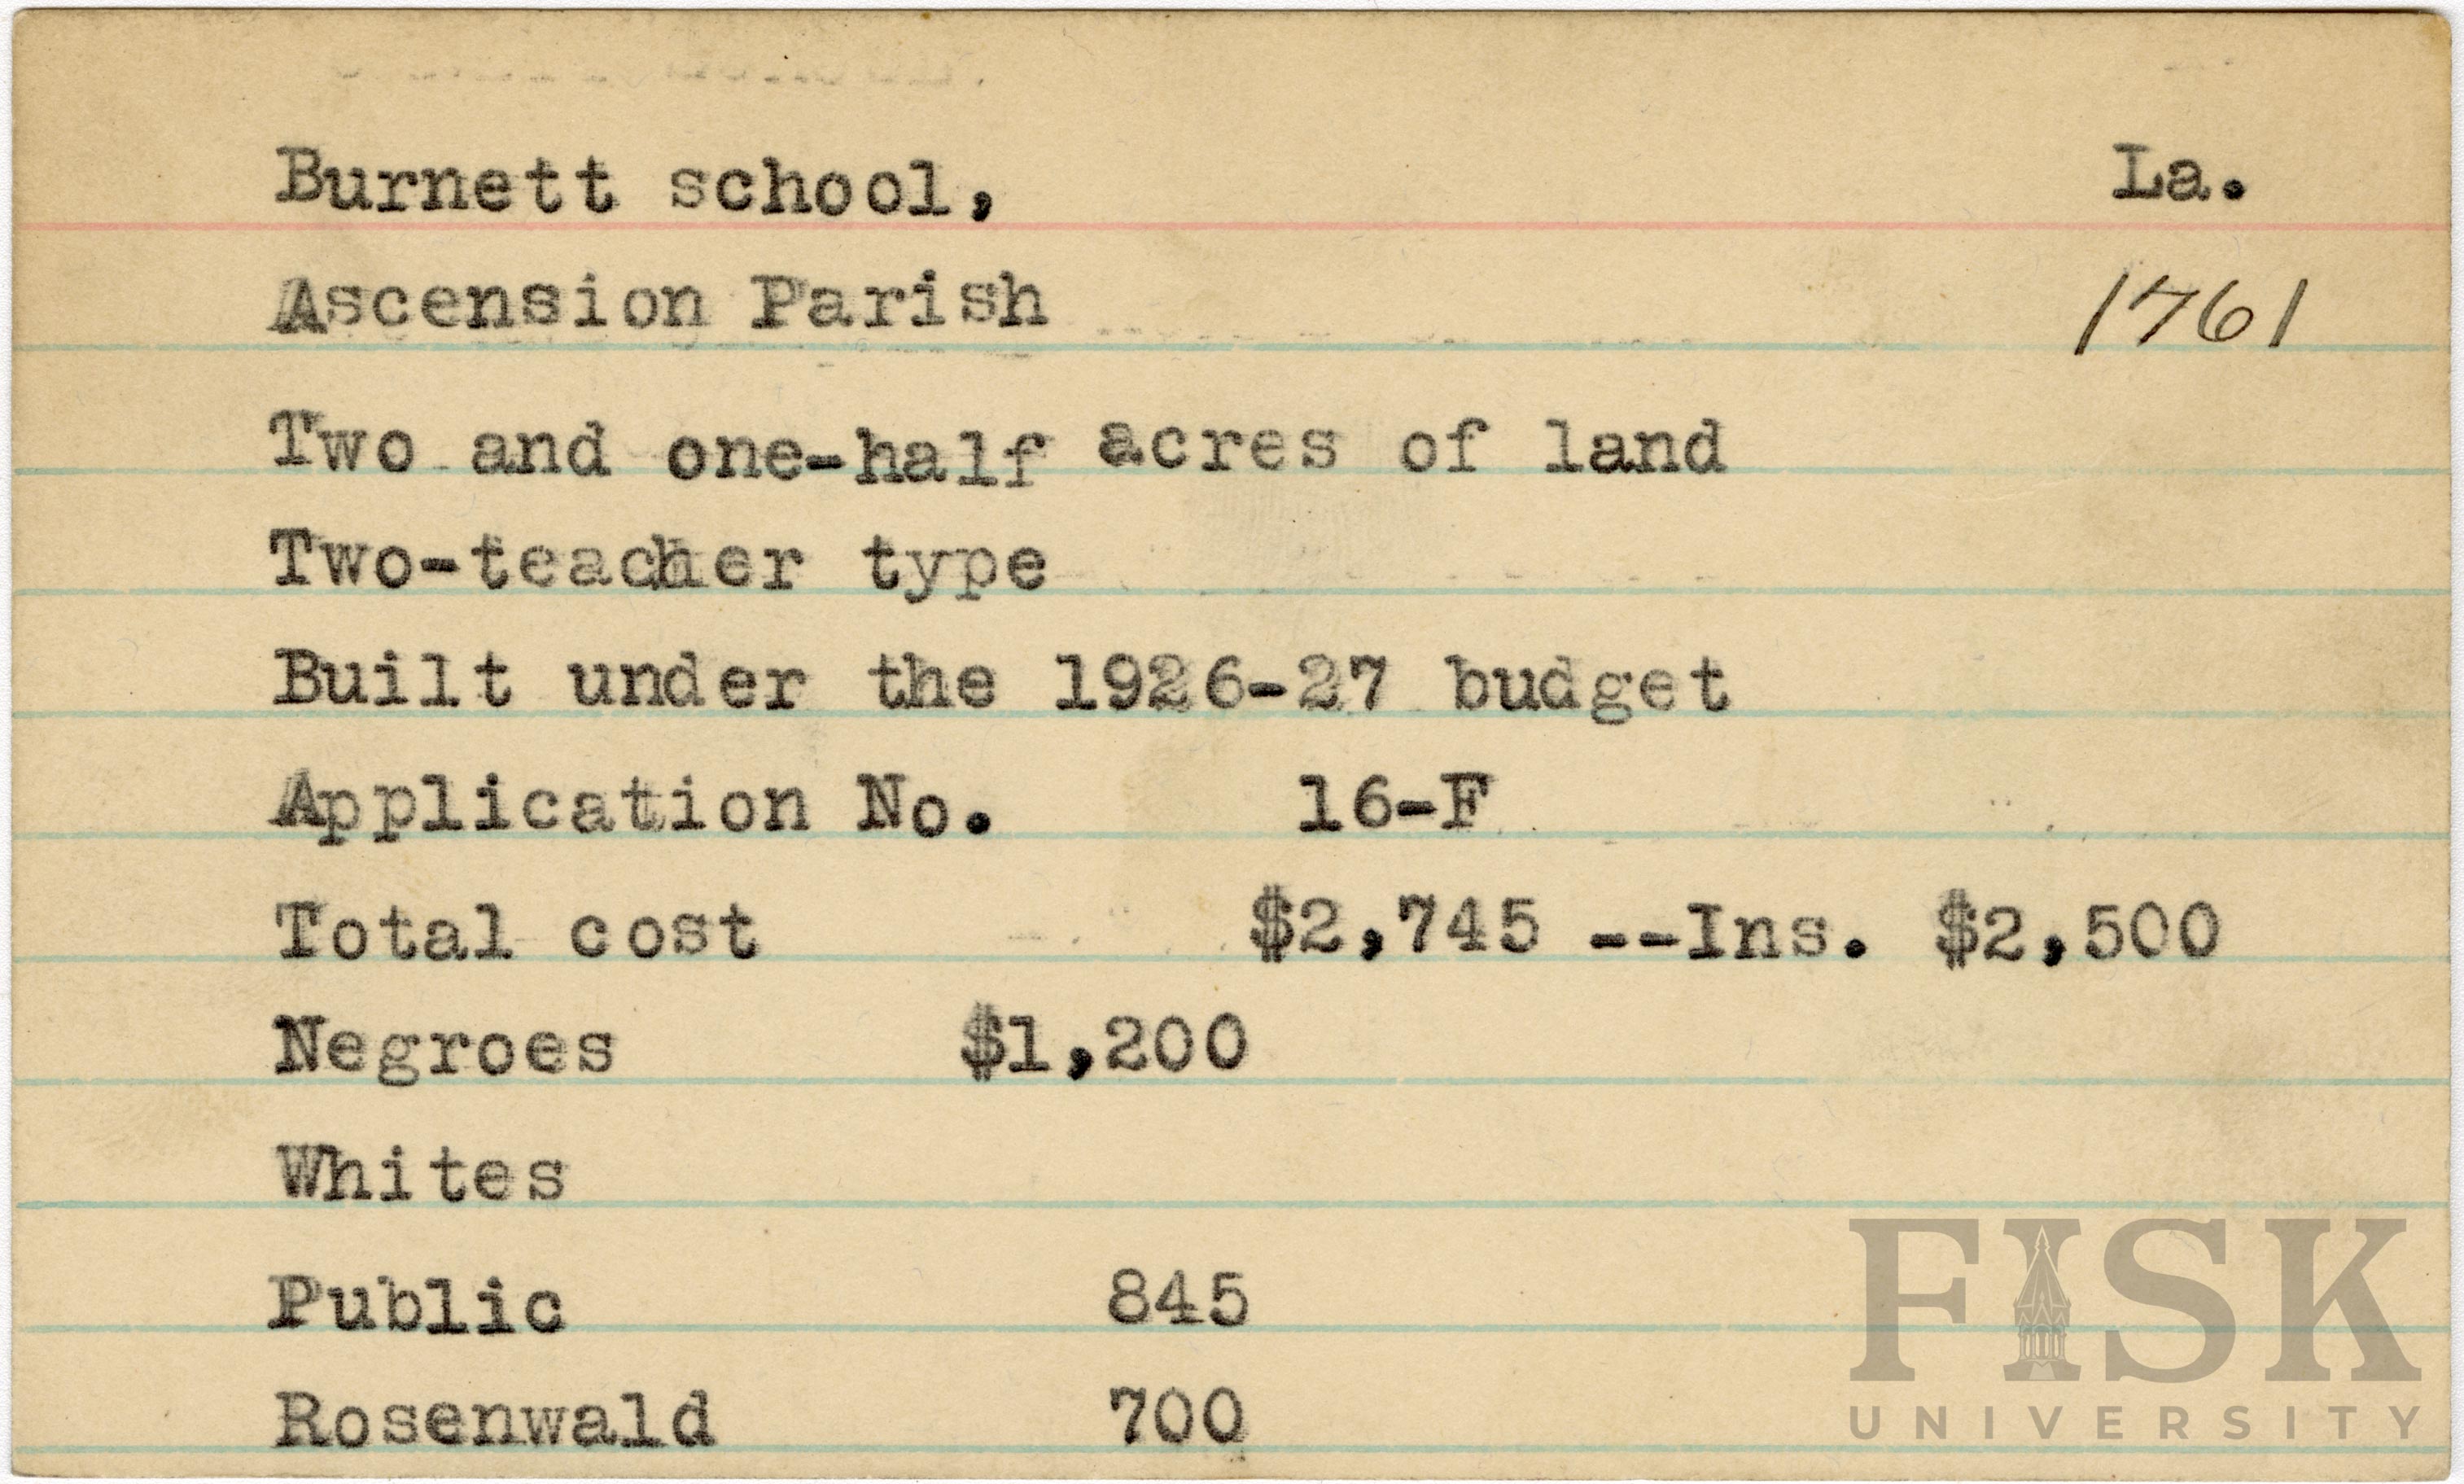 Burnett school, La.
Ascension Parish 1761
Two and one-half acres of land
Two-teacher type
Built under the 1926-27 budget
Application No. 16-F
Total cost $2,745 --Ins. $2,500
Negroes $1,200
Whites
Public 845
Rosenwald 700
FISK
UNIVERSITY